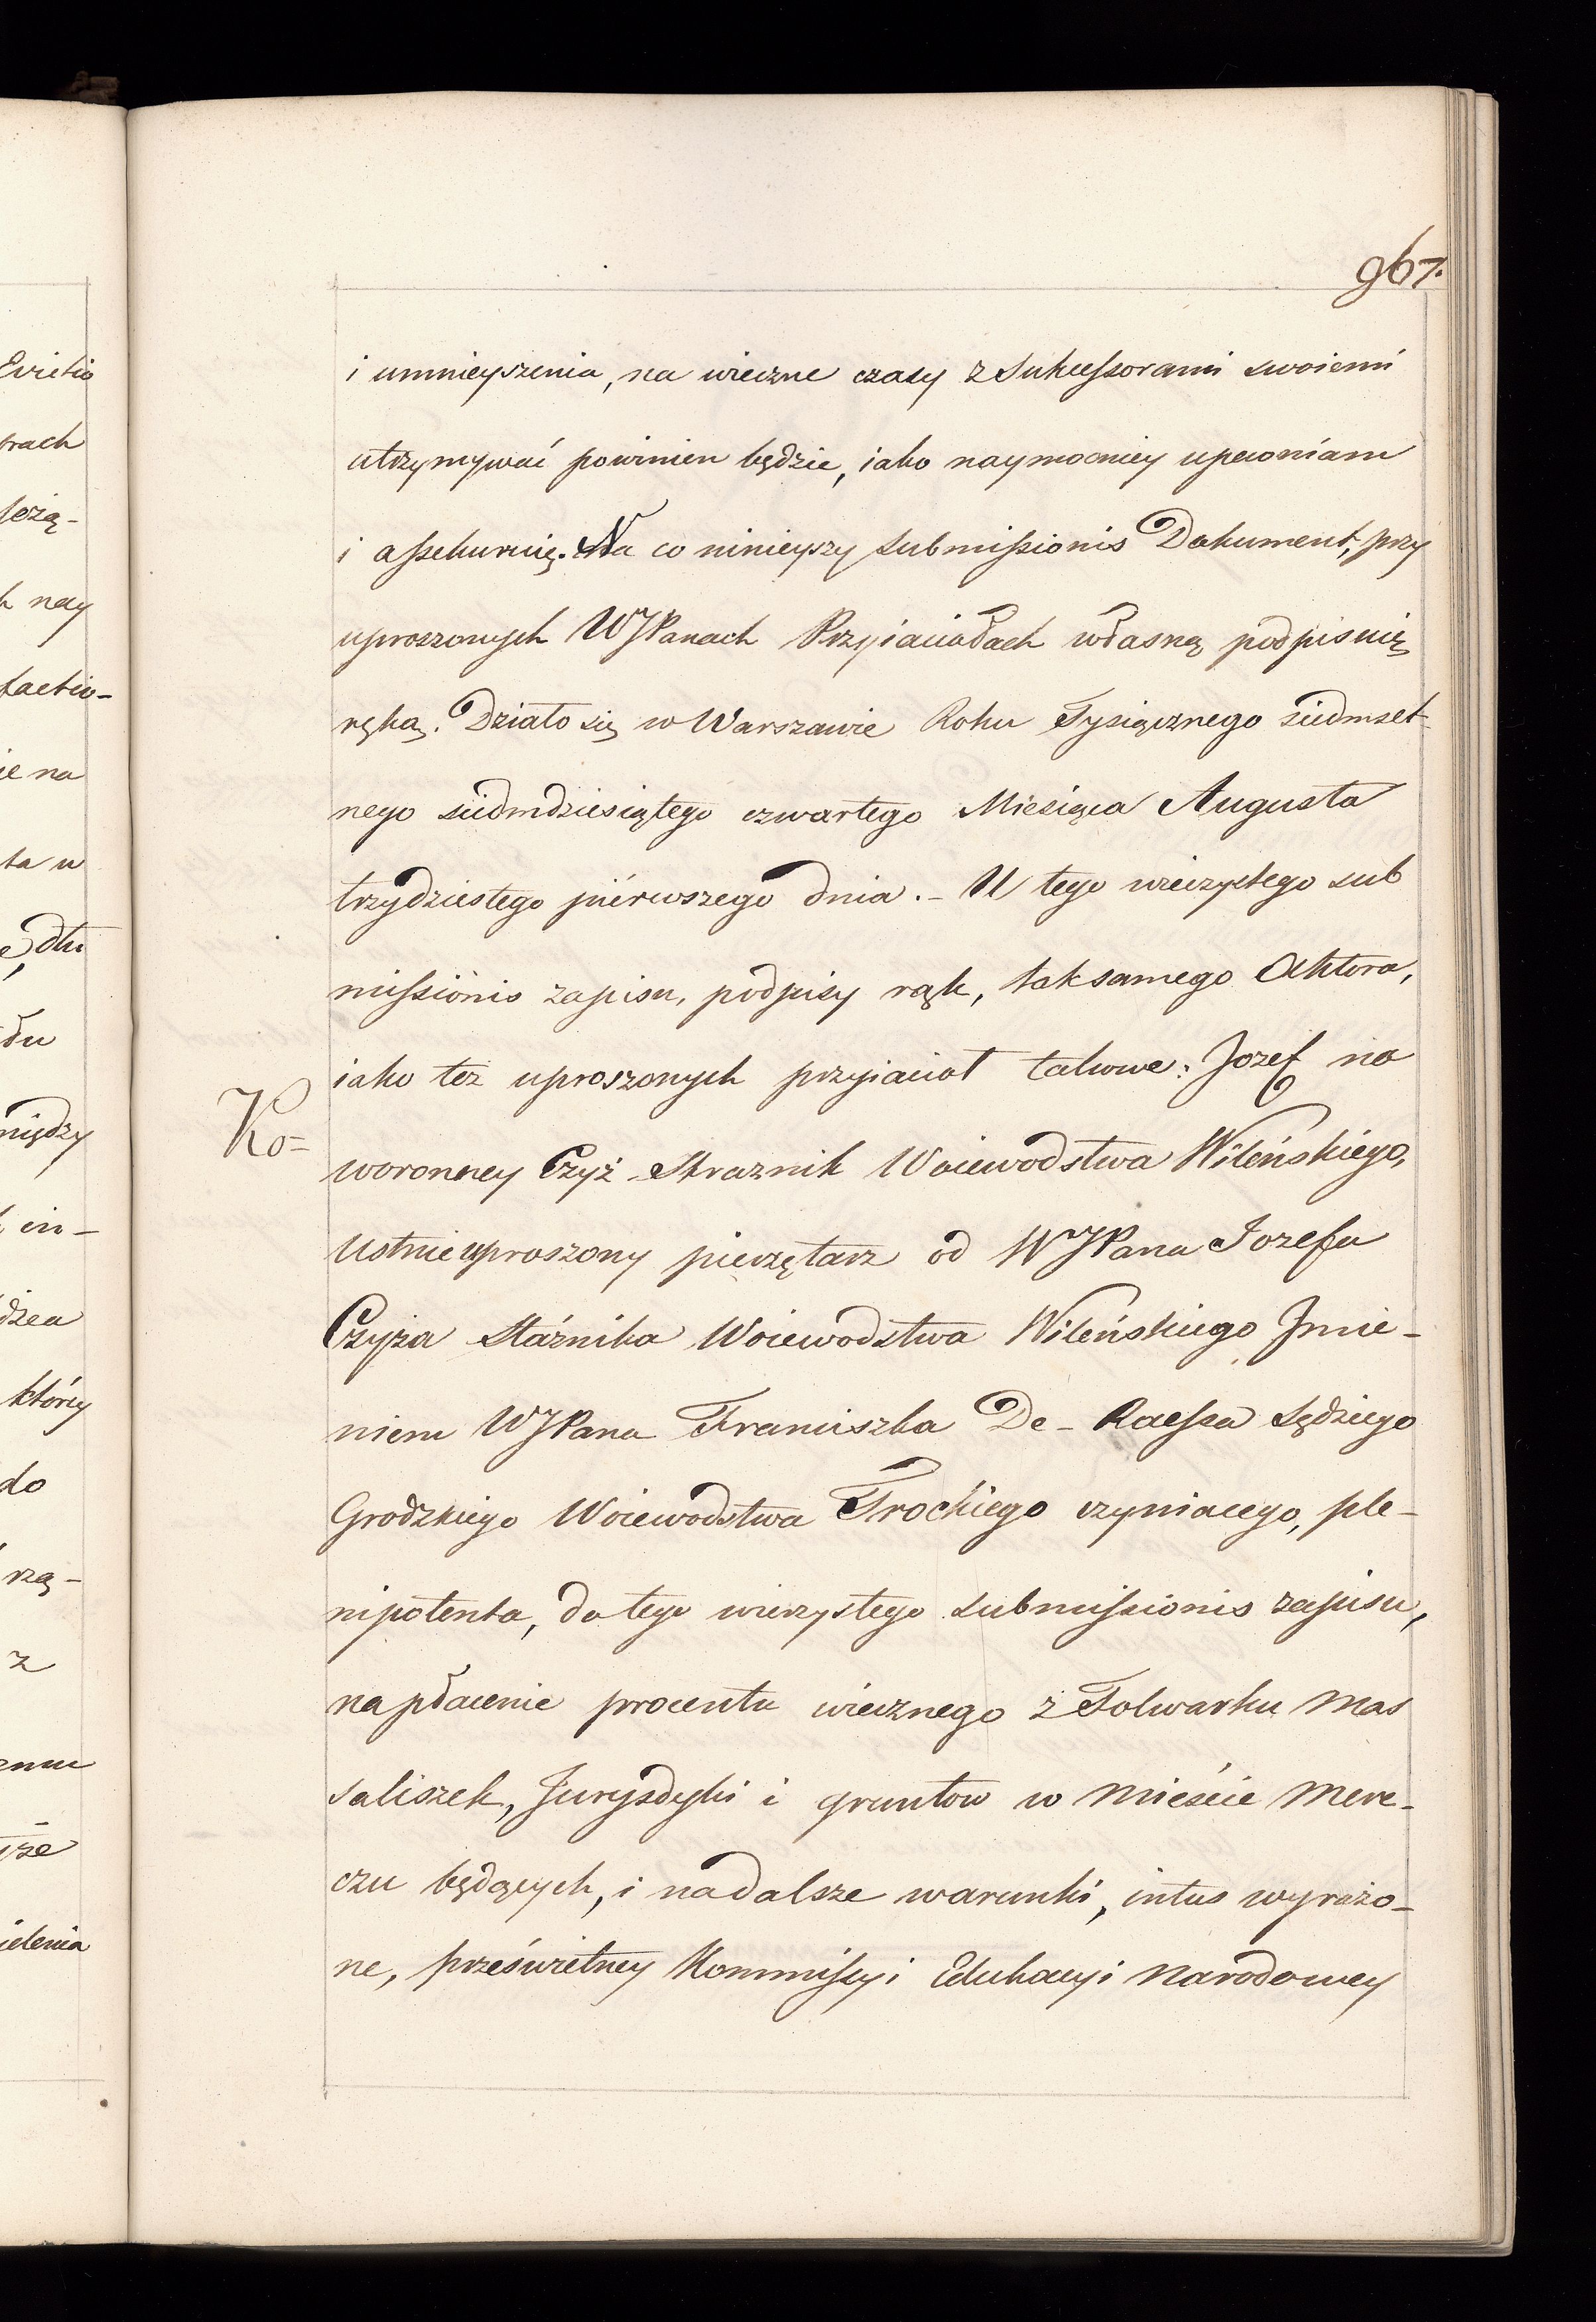 967.
i umnieyszenia, na wieczne czasy z Sukcessorami swoiemi
utrzymywać powinien będzie, iako naymocniey upewniam
i assekuruię. Na co ninieyszy submissionis Dokument, przy
uproszonych WJPanach Przyiaciołach własną podpisuię
ręką. Działo się w Warszawie Roku Tysiącznego siedmset-
nego siedmdziesiątego czwartego Miesiąca Augusta
trzydziestego piérwszego dnia. - U tego wieczystego sub
missionis zapisu, podpisy rąk, tak samego Aktora,
iako tez uproszonych przyiaciot takowe: Jozef na
Ko=
woronney Czyż Strażnik Woiewodstwa Wileńskiego,
Ustnie uproszony pieczętarz od WJPana Jozefa
Czyża Stáżnika Woiewodstwa Wileńskiego Jmie-
niem WJPana Franciszka De-Raessa Sędziego
Grodzkiego Woiewodstwa Trockiego czyniacego, ple-
nipotenta, do tego wieczystego submissionis zapisu,
na płacenie procentu wiecznego z Folwarku Mas
saliszek, Jurysdyki i gruntow w Mieście Mere-
czu będących, i na dalsze warunki, intus wyrażo-
ne, prześwietney Kommissyi Edukacyi Narodowey